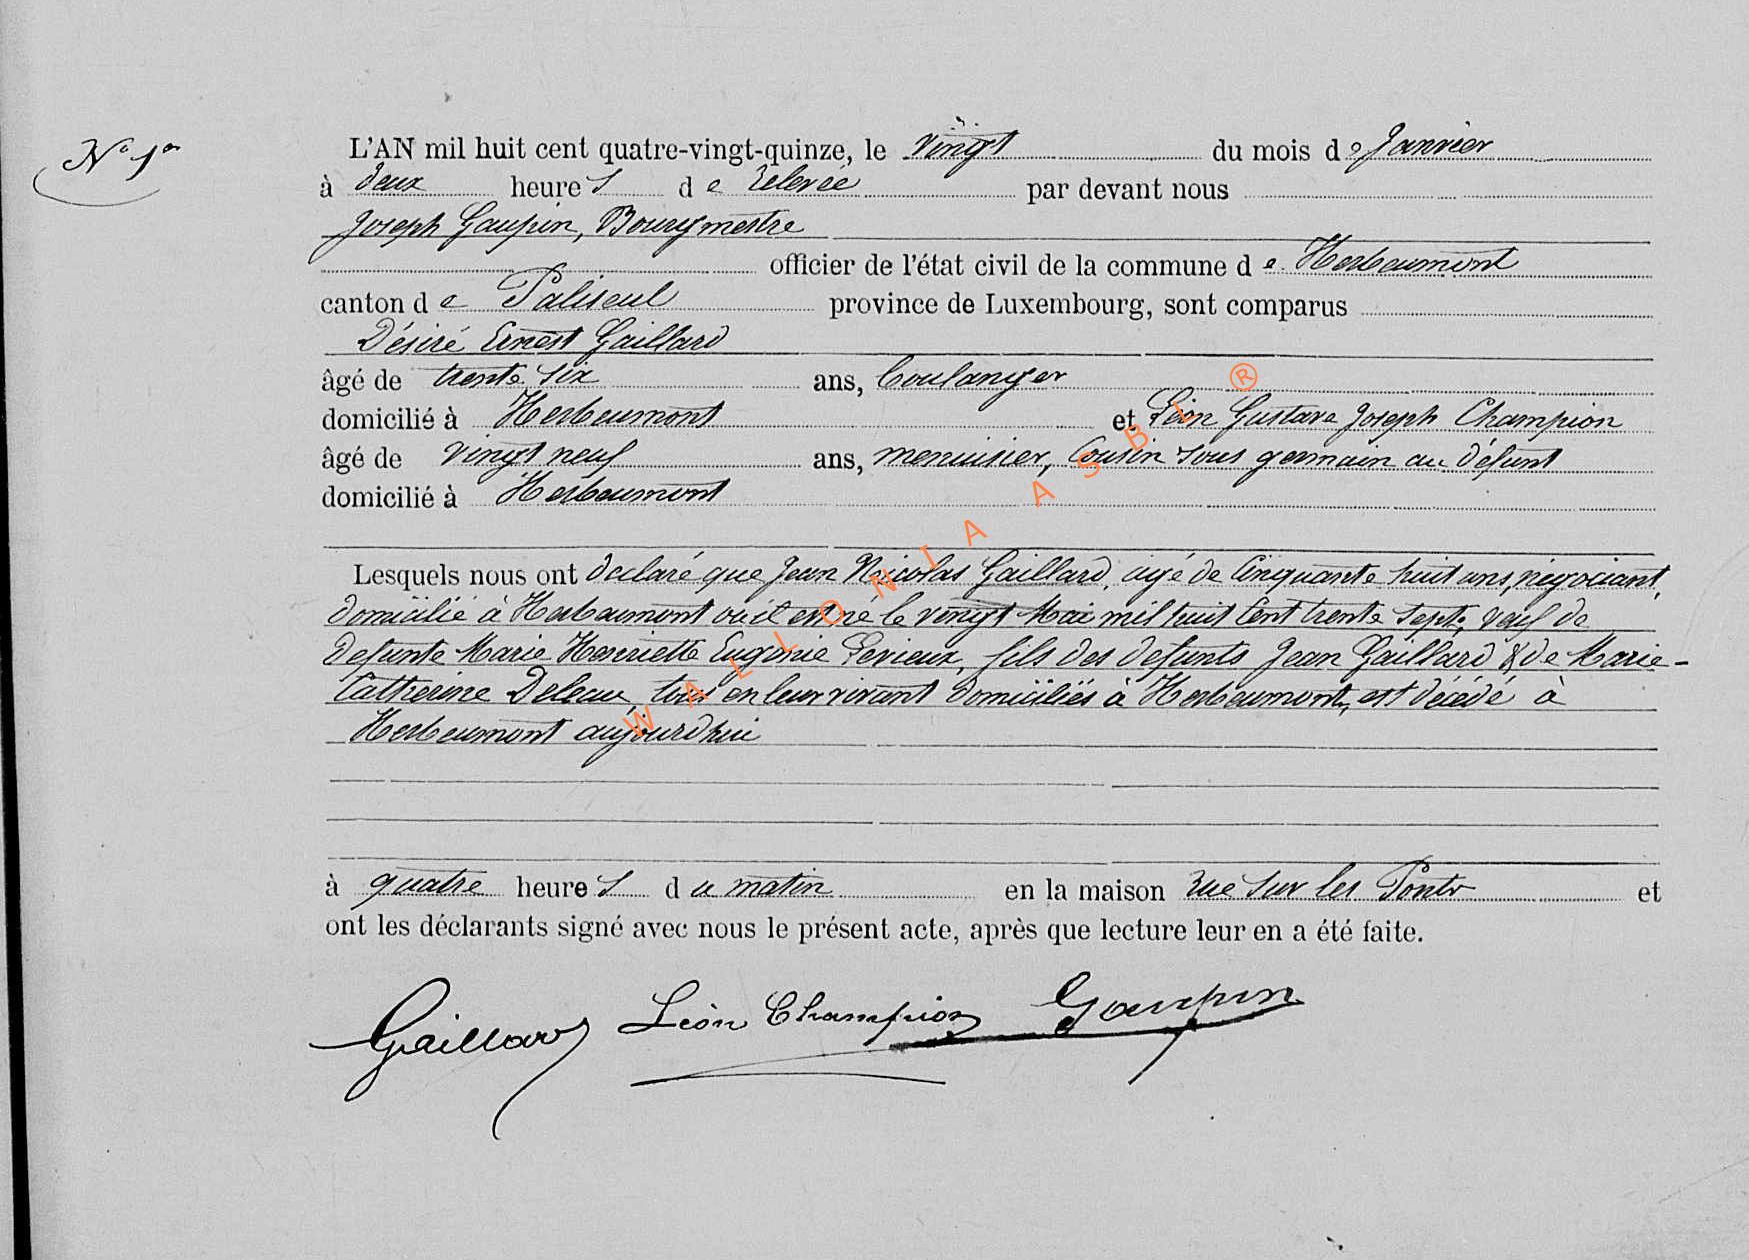 N° 1er
L'AN mil huit cent quatre-vingt-quinze, le vingt du mois de Janvier
à deux heures de relevée par devant nous
Joseph Gaupin, Bourgmestre
officier de l'état civil de la commune de Herbeumont
canton de Paliseul province de Luxembourg, sont comparus
Désiré Ernest Gaillard
âgé de trente six ans, boulanger
domicilié à Herbeumont et Léon Gustave Joseph Champion
âgé de vingt neuf ans, menuisier, Cousin sous germain au défunt
domicilié à Herbeumont
Lesquels nous ont déclaré que Jean Nicolas Gaillard, agé de Cinquante huit ans, négociant,
domicilié à Herbeumont où il est né le vingt Mai mil huit Cent trente sept, veuf de
défunte Marie Henriette Eugénie Lévieux, fils des défunts Jean Gaillard & de Marie-
Catherine Deleau, tous en leur vivant domiciliés à Herbeumont, est décédé à
Herbeumont aujourd'hui
à quatre heures du matin en la maison rue sur les Ponts et
ont les déclarants signé avec nous le présent acte, après que lecture leur en a été faite.
Gaillard Léon Champion Gaupin
WALLONIA ASBL ®